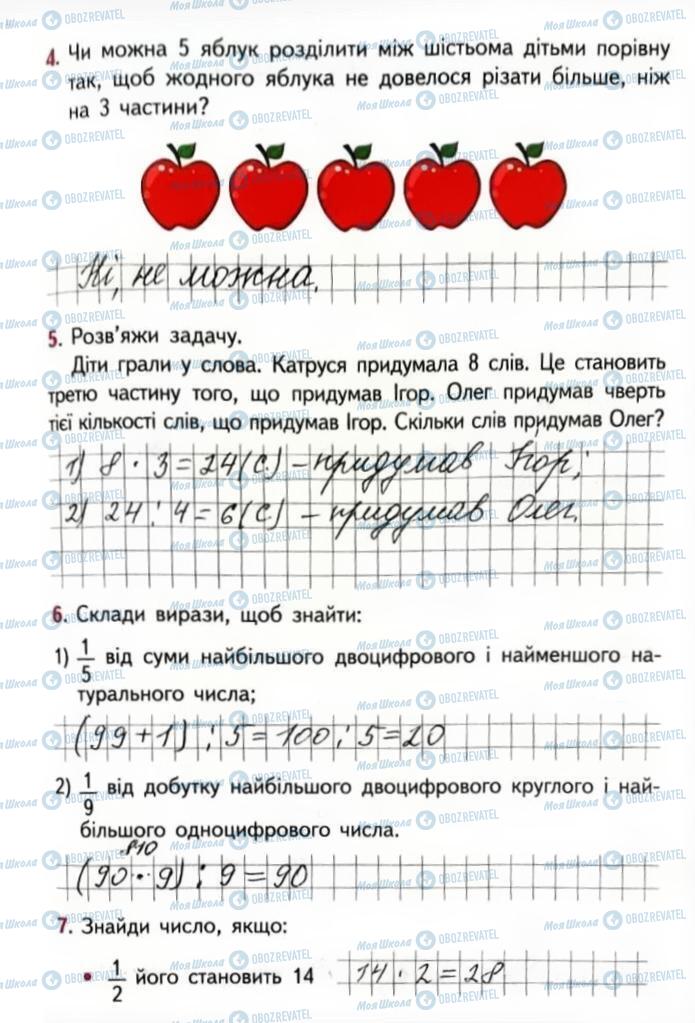 4. Чи можна 5 яблук розділити між шістьома дітьми порівну
так, щоб жодного яблука не довелося різати більше, ніж
на 3 частини?
Ні, не можна.
5. Розв'яжи задачу.
Діти грали у слова. Катруся придумала 8 слів. Це становить
третю частину того, що придумав Ігор. Олег придумав чверть
тієї кількості слів, що придумав Ігор. Скільки слів придумав Олег?
1) 8 · 3 = 24 (С) – придумав Ігор;
2) 24 : 4 = 6 (С) – придумав Олег.
6. Склади вирази, щоб знайти:
1) 1/5 від суми найбільшого двоцифрового і найменшого на-
турального числа;
(99 + 1) : 5 = 100 : 5 = 20
2) 1/9 від добутку найбільшого двоцифрового круглого і най-
більшого одноцифрового числа.
810
(90 · 9) : 9 = 90
7. Знайди число, якщо:
• 1/2 його становить 14 14 · 2 = 28
МояШкола OBOZREVATEL